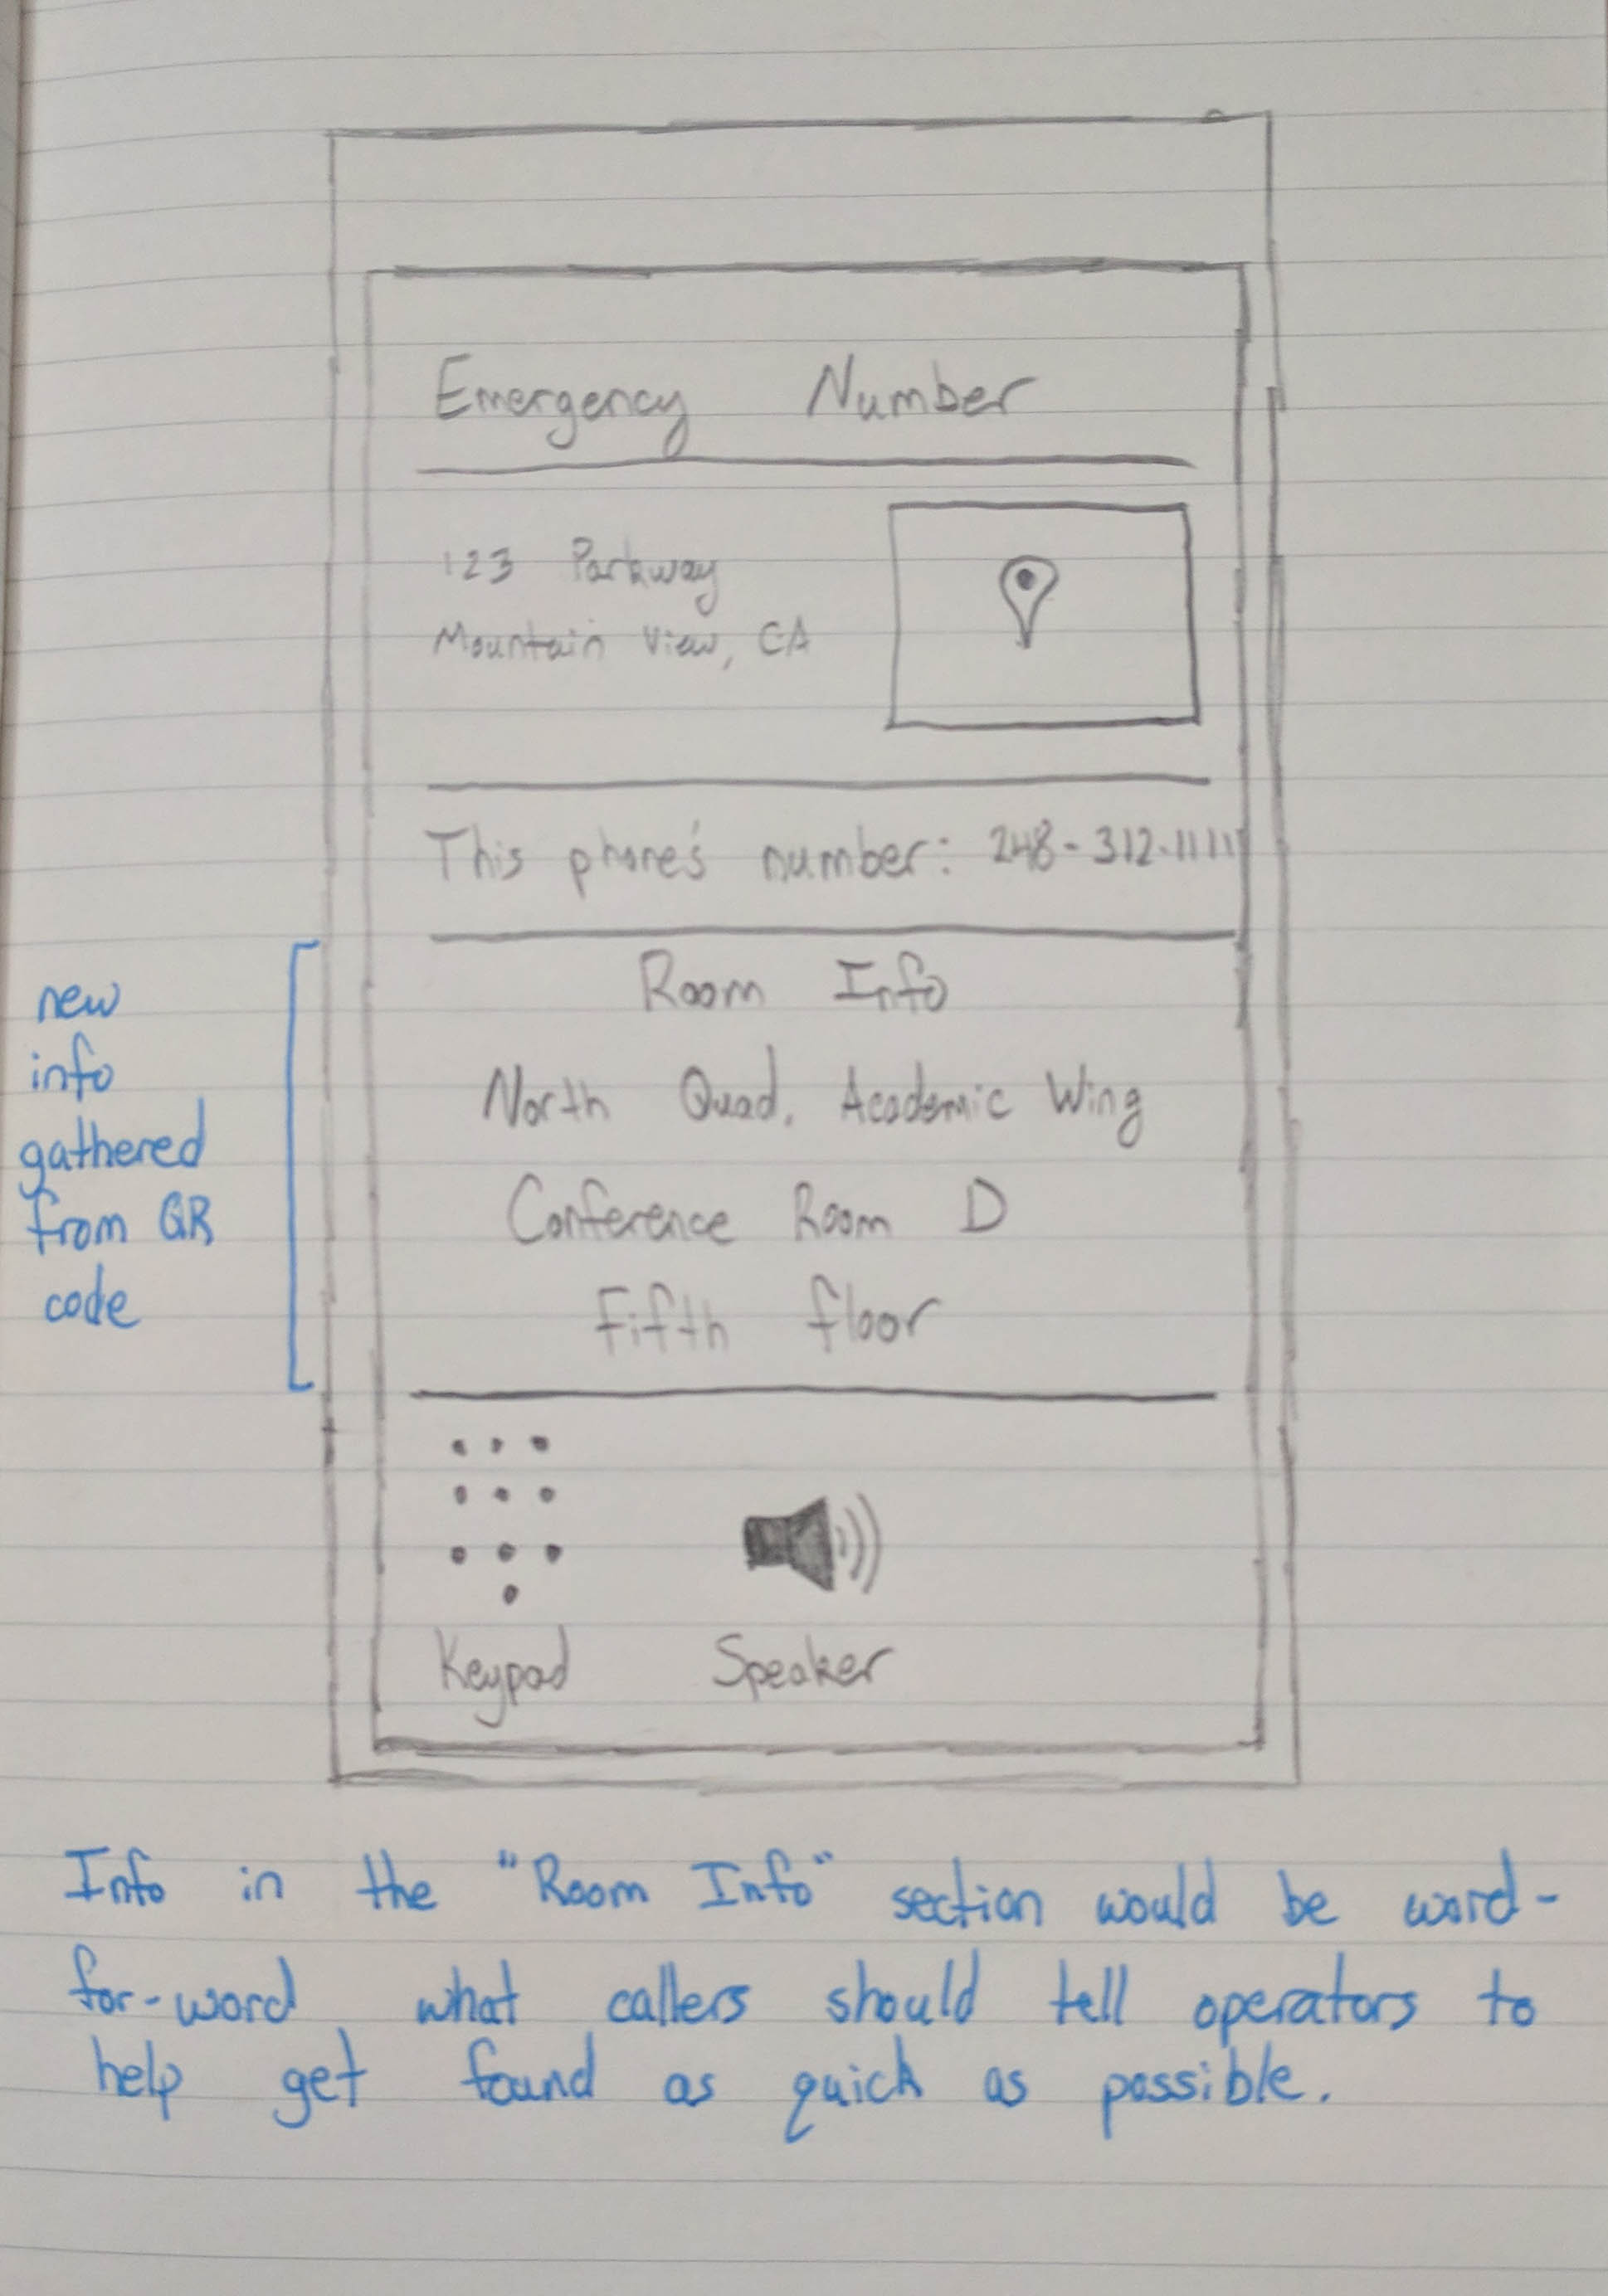 Emergency Number
123 Parkway
Mountain View, CA
This phone's number: 248-312-1111
new
info
gathered
from QR
code
Room Info
North Quad, Academic Wing
Conference Room D
Fifth floor
Keypad Speaker
Info in the "Room Info" section would be word-
for-word what callers should tell operators to
help get found as quick as possible.